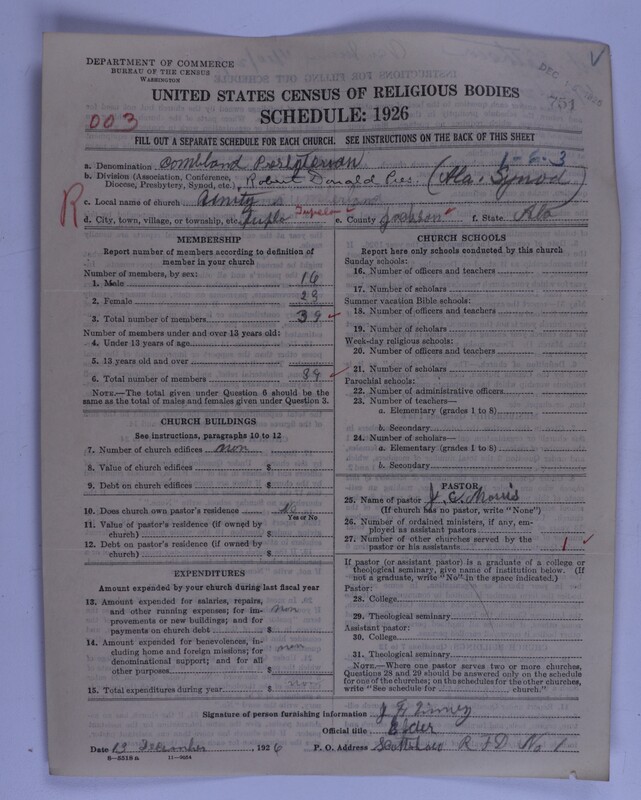 DEPARTMENT OF COMMERCE
BUREAU OF THE CENSUS
WASHINGTON
UNITED STATES CENSUS OF RELIGIOUS BODIES
SCHEDULE: 1926
751
003
FILL OUT A SEPARATE SCHEDULE FOR EACH CHURCH. SEE INSTRUCTIONS ON THE BACK OF THIS SHEET
1-6-3
a. Denomination Presbyterian
b. Division (Association, Conference, Diocese, Presbytery, Synod, etc.) Robert Donald Pres. (Ala. Synod)
R
c. Local name of church Amity
d. City, town, village, or township, etc. Tupelo e. County Jackson f. State Ala
MEMBERSHIP
Report number of members according to definition of
member in your church
Number of members, by sex:
1. Male
2. Female
3. Total number of members 39
Number of members under and over 13 years old:
4. Under 13 years of age
5. 13 years old and over
6. Total number of members 39
NOTE.—The total given under Question 6 should be
same as the total of males and females given under Question 3.
CHURCH BUILDINGS
See instructions, paragraphs 10 to 12
7. Number of church edifices non
8. Value of church edifices $
9. Debt on church edifices $
10. Does church own pastor's residence No
Yes or No
11. Value of pastor's residence (if owned by
church) $
12. Debt on pastor's residence (if owned by
church) $
EXPENDITURES
Amount expended by your church during last fiscal year
13. Amount expended for salaries, repairs,
and other running expenses; for im-
provements or new buildings; and for
payments on church debt $ non
14. Amount expended for benevolences, in-
cluding home and foreign missions; for
denominational support; and for all
other purposes $ non
15. Total expenditures during year $ non
CHURCH SCHOOLS
Report here only schools conducted by this church
Sunday schools:
16. Number of officers and teachers
17. Number of scholars
Summer vacation Bible schools:
18. Number of officers and teachers
19. Number of scholars
Week-day religious schools:
20. Number of officers and teachers
21. Number of scholars
Parochial schools:
22. Number of administrative officers
23. Number of teachers—
a. Elementary (grades 1 to 8)
b. Secondary
24. Number of scholars—
a. Elementary (grades 1 to 8)
b. Secondary
PASTOR
25. Name of pastor J. C. Morris
(If church has no pastor, write "None")
26. Number of ordained ministers, if any, em-
ployed as assistant pastors
27. Number of other churches served by the
pastor or his assistants 1
If pastor (or assistant pastor) is a graduate of a college or
theological seminary, give name of institution below. (If
not a graduate, write "No" in the space indicated.)
Pastor:
28. College
29. Theological seminary
Assistant pastor:
30. College
31. Theological seminary
NOTE.—Where one pastor serves two or more churches,
Questions 28 and 29 should be answered only on the schedule
for one of the churches; on the schedules for the other churches,
write "See schedule for church."
Signature of person furnishing information
Official title Elder
Date 13 December, 1926 P. O. Address Scottsboro R F D No 1
8-5518a 11-9224